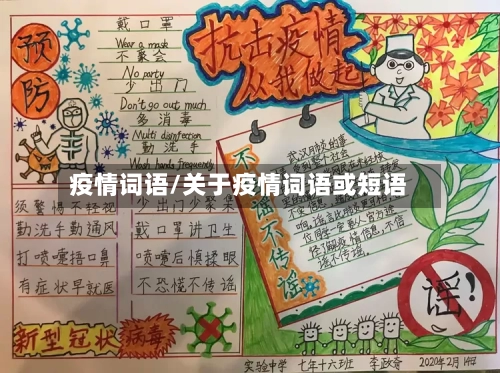 预防
戴口罩
Wear a mask
不聚会
No party
少出门
Don't go out much
多消毒
Multi disinfection
勤洗手
Wash hands frequently
抗击疫情
从我做起
疫情词语/关于疫情词语或短语
须警惕不轻视
少出门少聚集
勤洗手勤通风
戴口罩讲卫生
打喷嚏捂口鼻
喷嚏后慎揉眼
有症状早就医
不恐慌不传谣
新型冠状病毒
不信谣不传谣
武汉肺炎的事
谣不传谣。
谣!
实验中学 七年十六班 李政齐 2020年2月14日